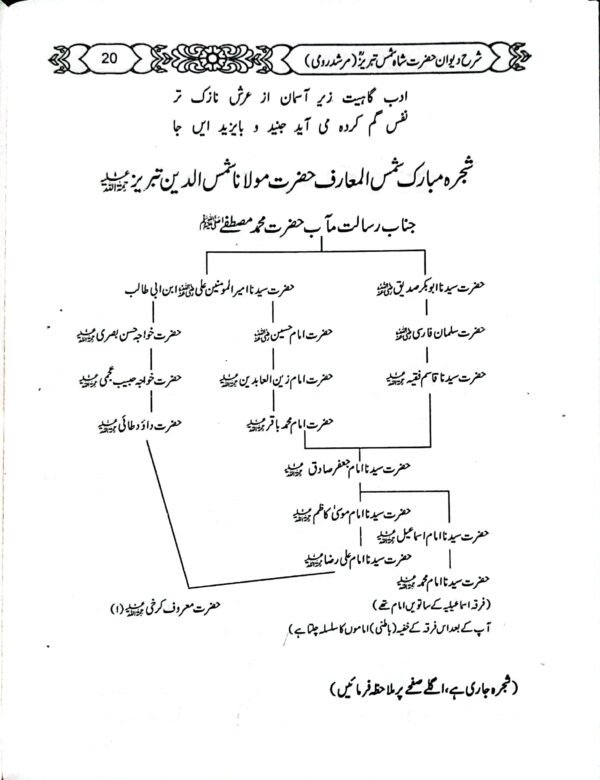 شرح دیوان حضرت شاہ شمس تبریزؒ (مرشد رومی)
20
ادب گاہیست زیر آسمان از عرش نازک تر
نفس گم کردہ می آید جنید و بایزید ایں جا
شجرہ مبارک شمس المعارف حضرت مولانا شمس الدین تبریز رحمۃ اللہ علیہ
جناب رسالت مآب حضرت محمد مصطفےٰ ﷺ
حضرت سیدنا ابوبکر صدیق رضی اللہ عنہ
حضرت سیدنا امیر المومنین علی رضی اللہ عنہ ابن ابی طالب
حضرت سلمان فارسی رضی اللہ عنہ
حضرت امام حسین رضی اللہ عنہ
حضرت خواجہ حسن بصری رحمۃ اللہ علیہ
حضرت سیدنا قاسم فقیہ رحمۃ اللہ علیہ
حضرت امام زین العابدین رحمۃ اللہ علیہ
حضرت خواجہ حبیب عجمی رحمۃ اللہ علیہ
حضرت امام محمد باقر رحمۃ اللہ علیہ
حضرت داؤد طائی رحمۃ اللہ علیہ
حضرت سیدنا امام جعفر صادق رحمۃ اللہ علیہ
حضرت سیدنا امام موسیٰ کاظم رحمۃ اللہ علیہ
حضرت سیدنا امام اسماعیل رحمۃ اللہ علیہ
حضرت سیدنا امام علی رضا رحمۃ اللہ علیہ
حضرت سیدنا امام محمد رحمۃ اللہ علیہ
(فرقہ اسماعیلیہ کے ساتویں امام تھے)
حضرت معروف کرخی رحمۃ اللہ علیہ (۱)
آپ کے بعد اس فرقہ کے خفیہ (باطنی) اماموں کا سلسلہ چلتا ہے)
(شجرہ جاری ہے، اگلے صفحے پر ملاحظہ فرمائیں)